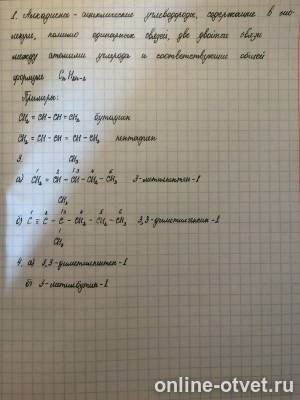 1. Алкадиены - ациклические углеводороды, содержащие в мо-
лекуле, помимо одинарных связей, две двойные связи
между атомами углерода и соответствующие общей
формуле CnH2n-2
Примеры:
CH2 = CH - CH = CH2 бутадиен
CH2 = CH - CH = CH - CH3 пентадиен
3. CH3
а) CH2 = CH - CH - CH2 - CH3 3-метилпентен-1
CH3
б) C ≡ C - C - CH2 - CH2 - CH3 3,3-диметилгексин-1
CH3
4. а) 3,3-диметилпентен-1
б) 3-метилбутин-1
online-otvet.ru